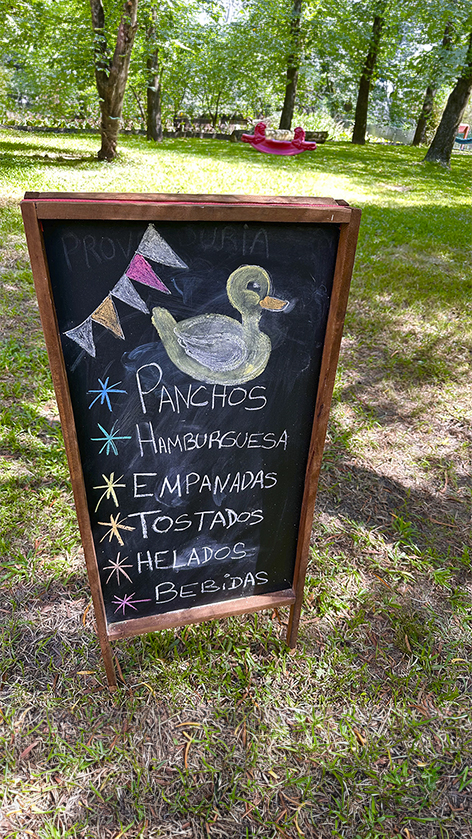 PANCHOS
HAMBURGUESA
EMPANADAS
TOSTADOS
HELADOS
BEBIDAS